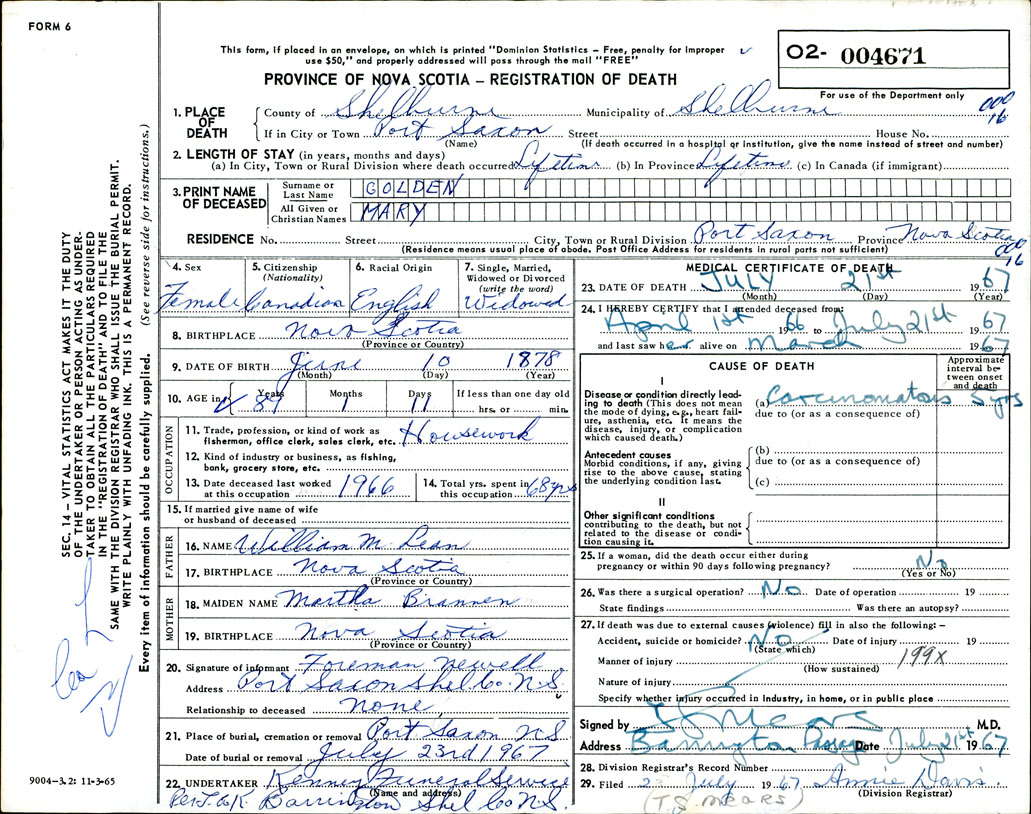 FORM 6
This form, if placed in an envelope, on which is printed "Dominion Statistics – Free, penalty for improper
use $50," and properly addressed will pass through the mail "FREE"
O2- 004671
PROVINCE OF NOVA SCOTIA – REGISTRATION OF DEATH
For use of the Department only
1. PLACE OF DEATH
County of Shelburne Municipality of Shelburne 000 16
If in City or Town Port Saxon Street House No.
(Name) (If death occurred in a hospital or institution, give the name instead of street and number)
2. LENGTH OF STAY (in years, months and days)
(a) In City, Town or Rural Division where death occurred Lifetime (b) In Province Lifetime (c) In Canada (if immigrant)
3. PRINT NAME OF DECEASED
Surname or Last Name GOLDEN
All Given or Christian Names MARY
RESIDENCE No. Street City, Town or Rural Division Port Saxon Province Nova Scotia
(Residence means usual place of abode. Post Office Address for residents in rural parts not sufficient) 000 16
4. Sex Female
5. Citizenship (Nationality) Canadian
6. Racial Origin English
7. Single, Married, Widowed or Divorced (write the word) Widowed
8. BIRTHPLACE Nova Scotia
(Province or Country)
9. DATE OF BIRTH June 10 1878
(Month) (Day) (Year)
10. AGE in Years 89 Months 1 Days 11 If less than one day old hrs. or min.
OCCUPATION
11. Trade, profession, or kind of work as fisherman, office clerk, sales clerk, etc. Housework
12. Kind of industry or business, as fishing, bank, grocery store, etc.
13. Date deceased last worked at this occupation 1966
14. Total yrs. spent in this occupation 68 yrs
15. If married give name of wife or husband of deceased
FATHER
16. NAME William McLean
17. BIRTHPLACE Nova Scotia
(Province or Country)
MOTHER
18. MAIDEN NAME Martha Brannen
19. BIRTHPLACE Nova Scotia
(Province or Country)
20. Signature of informant Foreman Newell
Address Port Saxon Shel Co. N.S.
Relationship to deceased none
21. Place of burial, cremation or removal Port Saxon N.S.
Date of burial or removal July 23rd 1967
22. UNDERTAKER Kenney Funeral Service
(Name and address)
Barrington Shel Co N.S.
MEDICAL CERTIFICATE OF DEATH
23. DATE OF DEATH JULY 21st 1967
(Month) (Day) (Year)
24. I HEREBY CERTIFY that I attended deceased from:
April 1st 1966 to July 21st 1967
and last saw her alive on March 1967
CAUSE OF DEATH
Approximate interval between onset and death
I
Disease or condition directly leading to death (This does not mean the mode of dying, e.g., heart failure, asthenia, etc. It means the disease, injury, or complication which caused death.)
(a) Carcinomatosis 5 yrs
due to (or as a consequence of)
Antecedent causes
Morbid conditions, if any, giving rise to the above cause, stating the underlying condition last.
(b)
due to (or as a consequence of)
(c)
II
Other significant conditions contributing to the death, but not related to the disease or condition causing it.
25. If a woman, did the death occur either during pregnancy or within 90 days following pregnancy? No
(Yes or No)
26. Was there a surgical operation? No Date of operation 19
State findings Was there an autopsy?
27. If death was due to external causes (violence) fill in also the following: –
Accident, suicide or homicide? No Date of injury 19
(State which)
Manner of injury 199X
(How sustained)
Nature of injury
Specify whether injury occurred in industry, in home, or in public place
Signed by M.D.
Address Barrington Passage Date July 21st 1967
28. Division Registrar's Record Number
29. Filed July 1967 Annie Davis
(Division Registrar)
(T.S. MEARS)
SEC. 14 – VITAL STATISTICS ACT MAKES IT THE DUTY
OF THE UNDERTAKER OR PERSON ACTING AS UNDER-
TAKER TO OBTAIN ALL THE PARTICULARS REQUIRED
IN THE "REGISTRATION OF DEATH" AND TO FILE THE
SAME WITH THE DIVISION REGISTRAR WHO SHALL ISSUE THE BURIAL PERMIT.
WRITE PLAINLY WITH UNFADING INK. THIS IS A PERMANENT RECORD.
Every item of information should be carefully supplied. (See reverse side for instructions.)
9004–3.2: 11-3-65